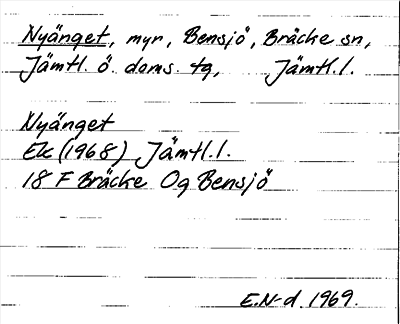 Nyänget, myr, Bensjö, Bräcke sn,
Jämtl. ö. doms. tg, Jämtl. l.
Nyänget
Ek (1968) Jämtl. l.
18 F Bräcke Og Bensjö
E.N-d. 1969.